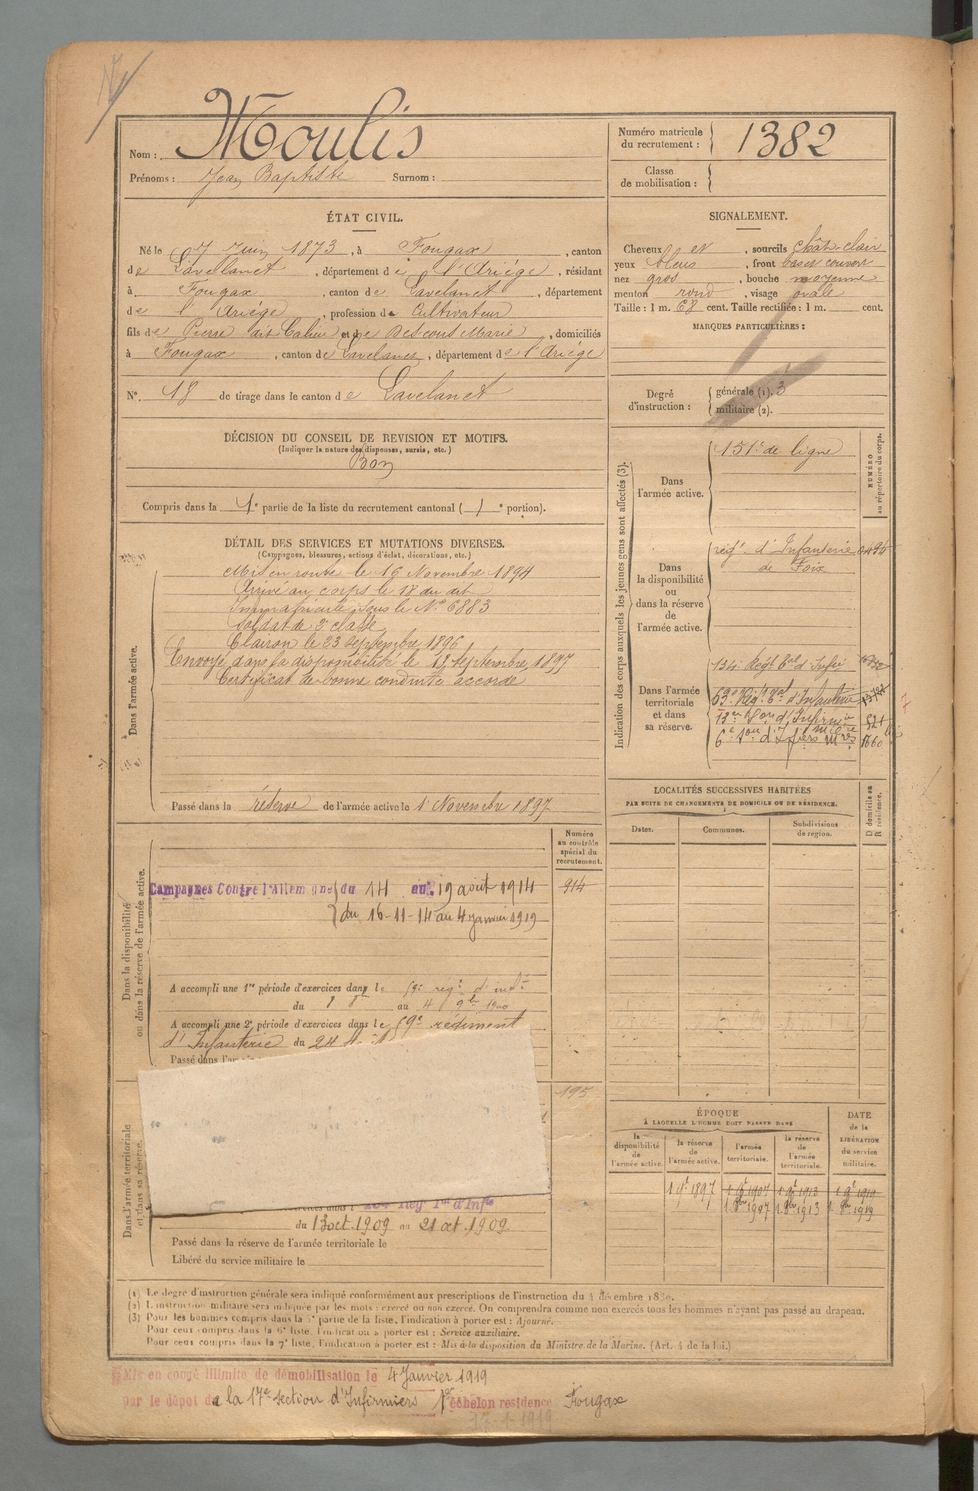 Nom : Moulis
Prénoms : Jean Baptiste Surnom :
Numéro matricule du recrutement : 1382
Classe de mobilisation :
ÉTAT CIVIL.
Né le 7 Juin 1873, à Fougax, canton
de Lavelanet, département de l'Ariége, résidant
à Fougax, canton de Lavelanet, département
de l'Ariége, profession de Cultivateur
fils de Pierre dit Calieu et de Descons Marie, domiciliés
à Fougax, canton de Lavelanet, département de l'Ariége
N° 18 de tirage dans le canton de Lavelanet
DÉCISION DU CONSEIL DE REVISION ET MOTIFS.
(Indiquer la nature des dispenses, sursis, etc.)
Bon
Compris dans la 1e partie de la liste du recrutement cantonal ( e portion).
SIGNALEMENT.
Cheveux et, sourcils chât-clair
yeux bleus, front bas et couvert
nez gros, bouche moyenne
menton rond, visage ovale
Taille : 1 m. 68 cent. Taille rectifiée : 1 m. cent.
MARQUES PARTICULIÈRES :
Degré d'instruction : générale (1). 3
militaire (2).
DÉTAIL DES SERVICES ET MUTATIONS DIVERSES.
(Campagnes, blessures, actions d'éclat, décorations, etc.)
Dans l'armée active.
Mis en route le 16 Novembre 1894
Arrivé au corps le 18 du dit
Immatriculé sous le N° 6883
Soldat de 2e classe
Clairon le 23 septembre 1896
Envoyé dans la disponibilité le septembre 1897
Certificat de bonne conduite accordé
Passé dans la réserve de l'armée active le 1 Novembre 1897
Indication des corps auxquels les jeunes gens sont affectés (3).
NUMÉRO au répertoire du corps.
Dans l'armée active.
151e de ligne
Dans la disponibilité ou dans la réserve de l'armée active.
régt d'Infanterie
de Foix
Dans l'armée territoriale et dans sa réserve.
134e Régt Bal d'Infie
63e Régt d'Infanterie
521
1660
LOCALITÉS SUCCESSIVES HABITÉES
PAR SUITE DE CHANGEMENTS DE DOMICILE OU DE RÉSIDENCE.
Dates. Communes. Subdivisions de region. D domicile ou R résidence.
Dans la disponibilité ou dans la réserve de l'armée active.
Numéro au contrôle spécial du recrutement.
914
Campagnes Contre l'Allemagne du 14 au 19 août 1914
du 16-11-14 au 4 janvier 1919
A accompli une 1re période d'exercices dans le 59e régt d'infie
du au 4 9bre 1900
A accompli une 2e période d'exercices dans le 59e régiment
d'Infanterie du 24
Passé dans l'
195
Dans l'armée territoriale et dans sa réserve.
du 13 oct. 1909 au 21 oct. 1909
Passé dans la réserve de l'armée territoriale le
Libéré du service militaire le
ÉPOQUE
À LAQUELLE L'HOMME DOIT PASSER DANS
la disponibilité de l'armée active. la réserve de l'armée active. l'armée territoriale. la réserve de l'armée territoriale.
DATE de la LIBÉRATION du service militaire.
(1) Le degré d'instruction générale sera indiqué conformément aux prescriptions de l'instruction du 4 décembre 1889.
(2) L'instruction militaire sera indiquée par les mots : exercé ou non exercé. On comprendra comme non exercés tous les hommes n'ayant pas passé au drapeau.
(3) Pour les hommes compris dans la 5e partie de la liste, l'indication à porter est : Ajourné.
Pour ceux compris dans la 6e liste, l'indication à porter est : Service auxiliaire.
Pour ceux compris dans la 7e liste, l'indication à porter est : Mis à la disposition du Ministre de la Marine. (Art. 4 de la loi.)
Mis en congé illimité de démobilisation le 4 Janvier 1919
par le dépôt de la 17e section d'Infirmiers 1er échelon residence Fougax